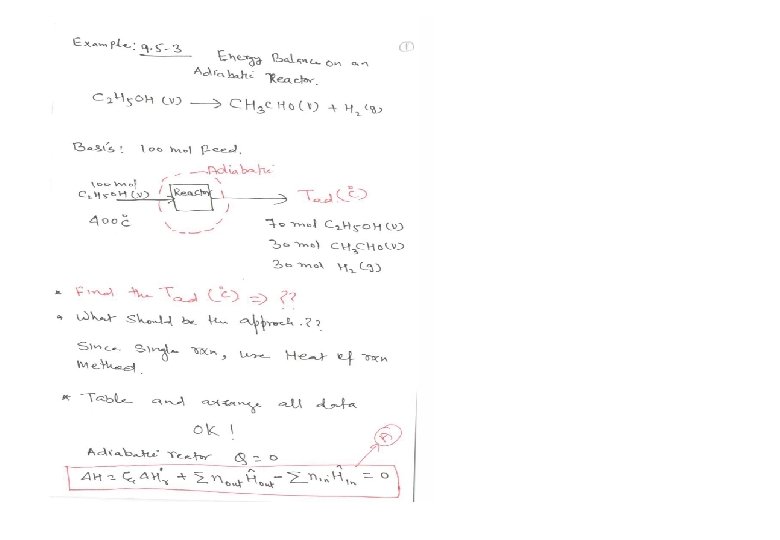 Example: 9.5-3
①
Energy Balance on an
Adiabatic Reactor.
C₂H₅OH (V) → CH₃CHO(V) + H₂ (g)
Basis: 100 mol feed.
Adiabatic
100 mol
C₂H₅OH (V)
Reactor
Tad (°C)
400°C
70 mol C₂H₅OH (V)
30 mol CH₃CHO(V)
30 mol H₂ (g)
* Find the Tad (°C) ⇒ ??
* What should be the approch.??
Since single rxn, use Heat of rxn
Method.
* Table and arrange all data
OK!
Adiabatic reator Q = 0
ΔH = ξ ΔHr° + Σ nout Ĥout - Σ nin Ĥin = 0